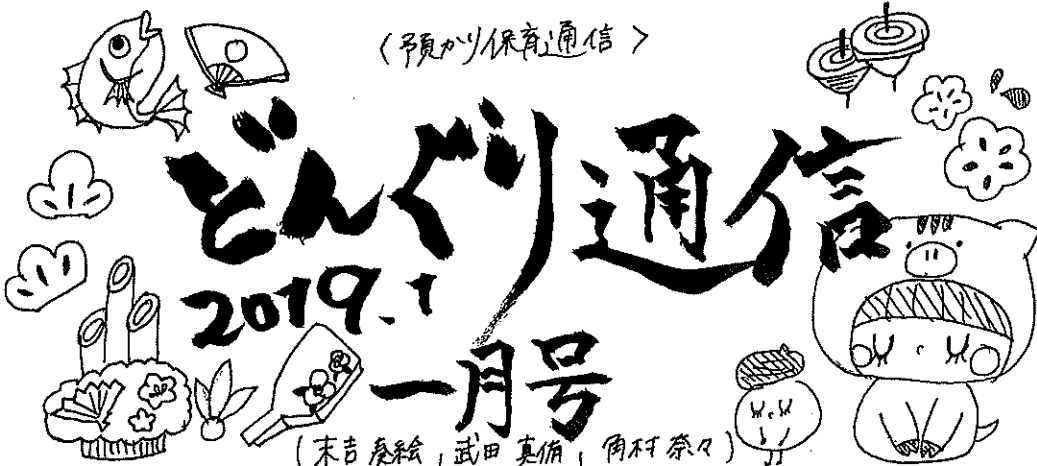 〈預かり保育通信〉
どんぐり通信
2019.1
一月号
(末吉 奏絵, 武田 真侑, 角村 奈々)